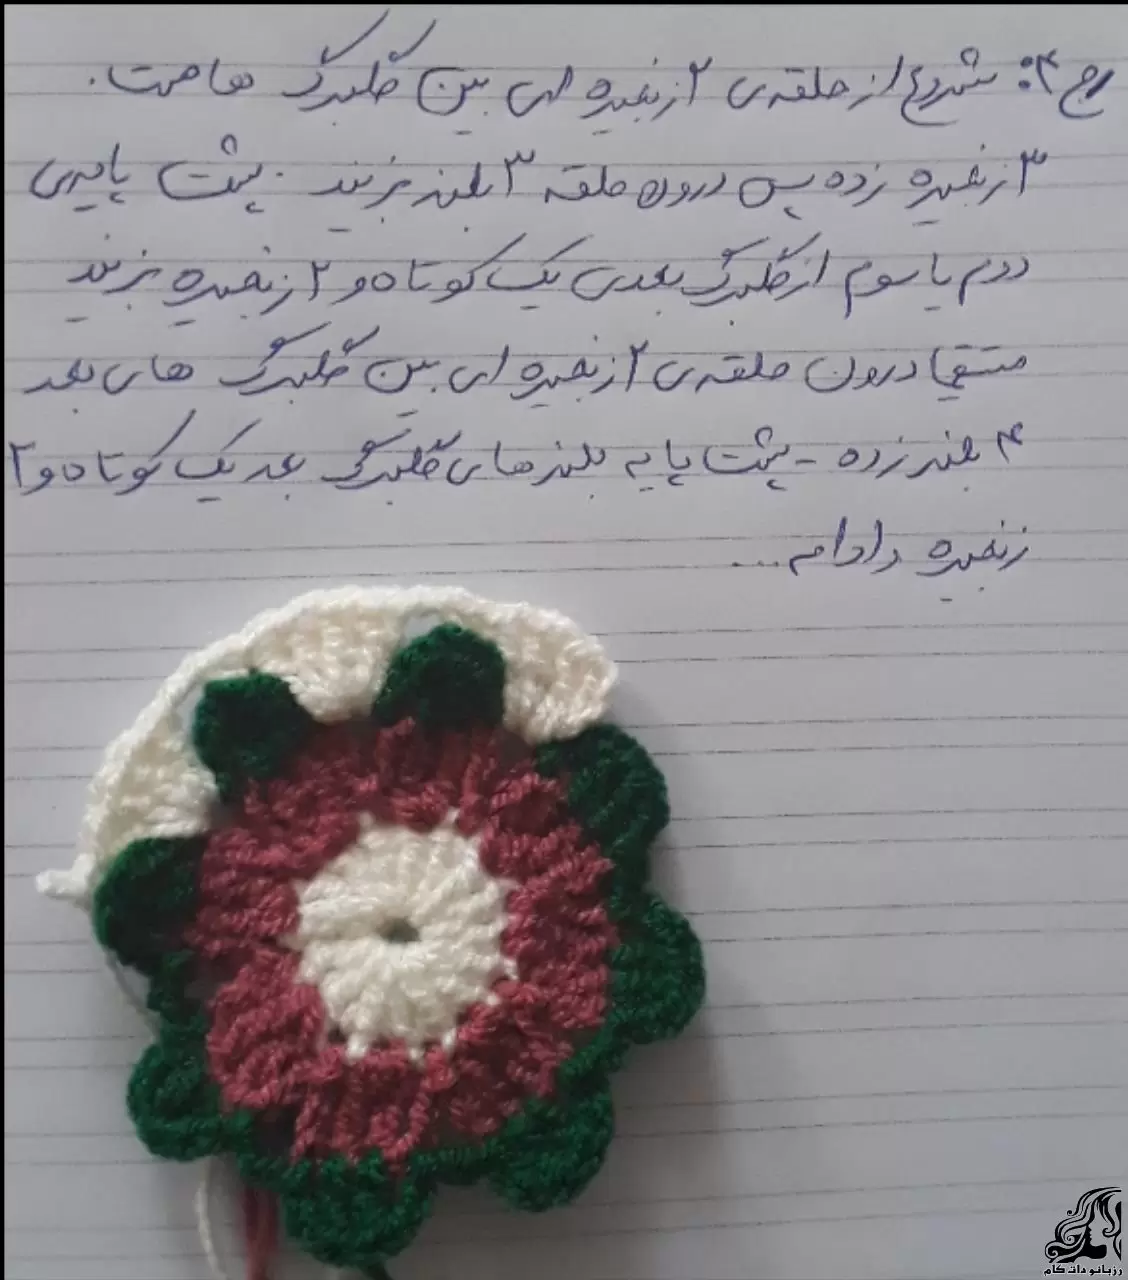 رج ۴: شروع از حلقه ی ۲ زنجیره ای بین گلبرگ هاست.
۳ زنجیره زده پس درون حلقه ۳ بلند بزنید. پشت پایه ی
دوم یا سوم از گلبرگ بعدی یک کوتاه و ۲ زنجیره بزنید
درون حلقه ی ۲ زنجیره ای بین گلبرگ های بعد
۴ بلند زده - پشت پایه بلندهای گلبرگ بعد یک کوتاه و ۲
زنجیره و ادامه...
رزبانو دات کام